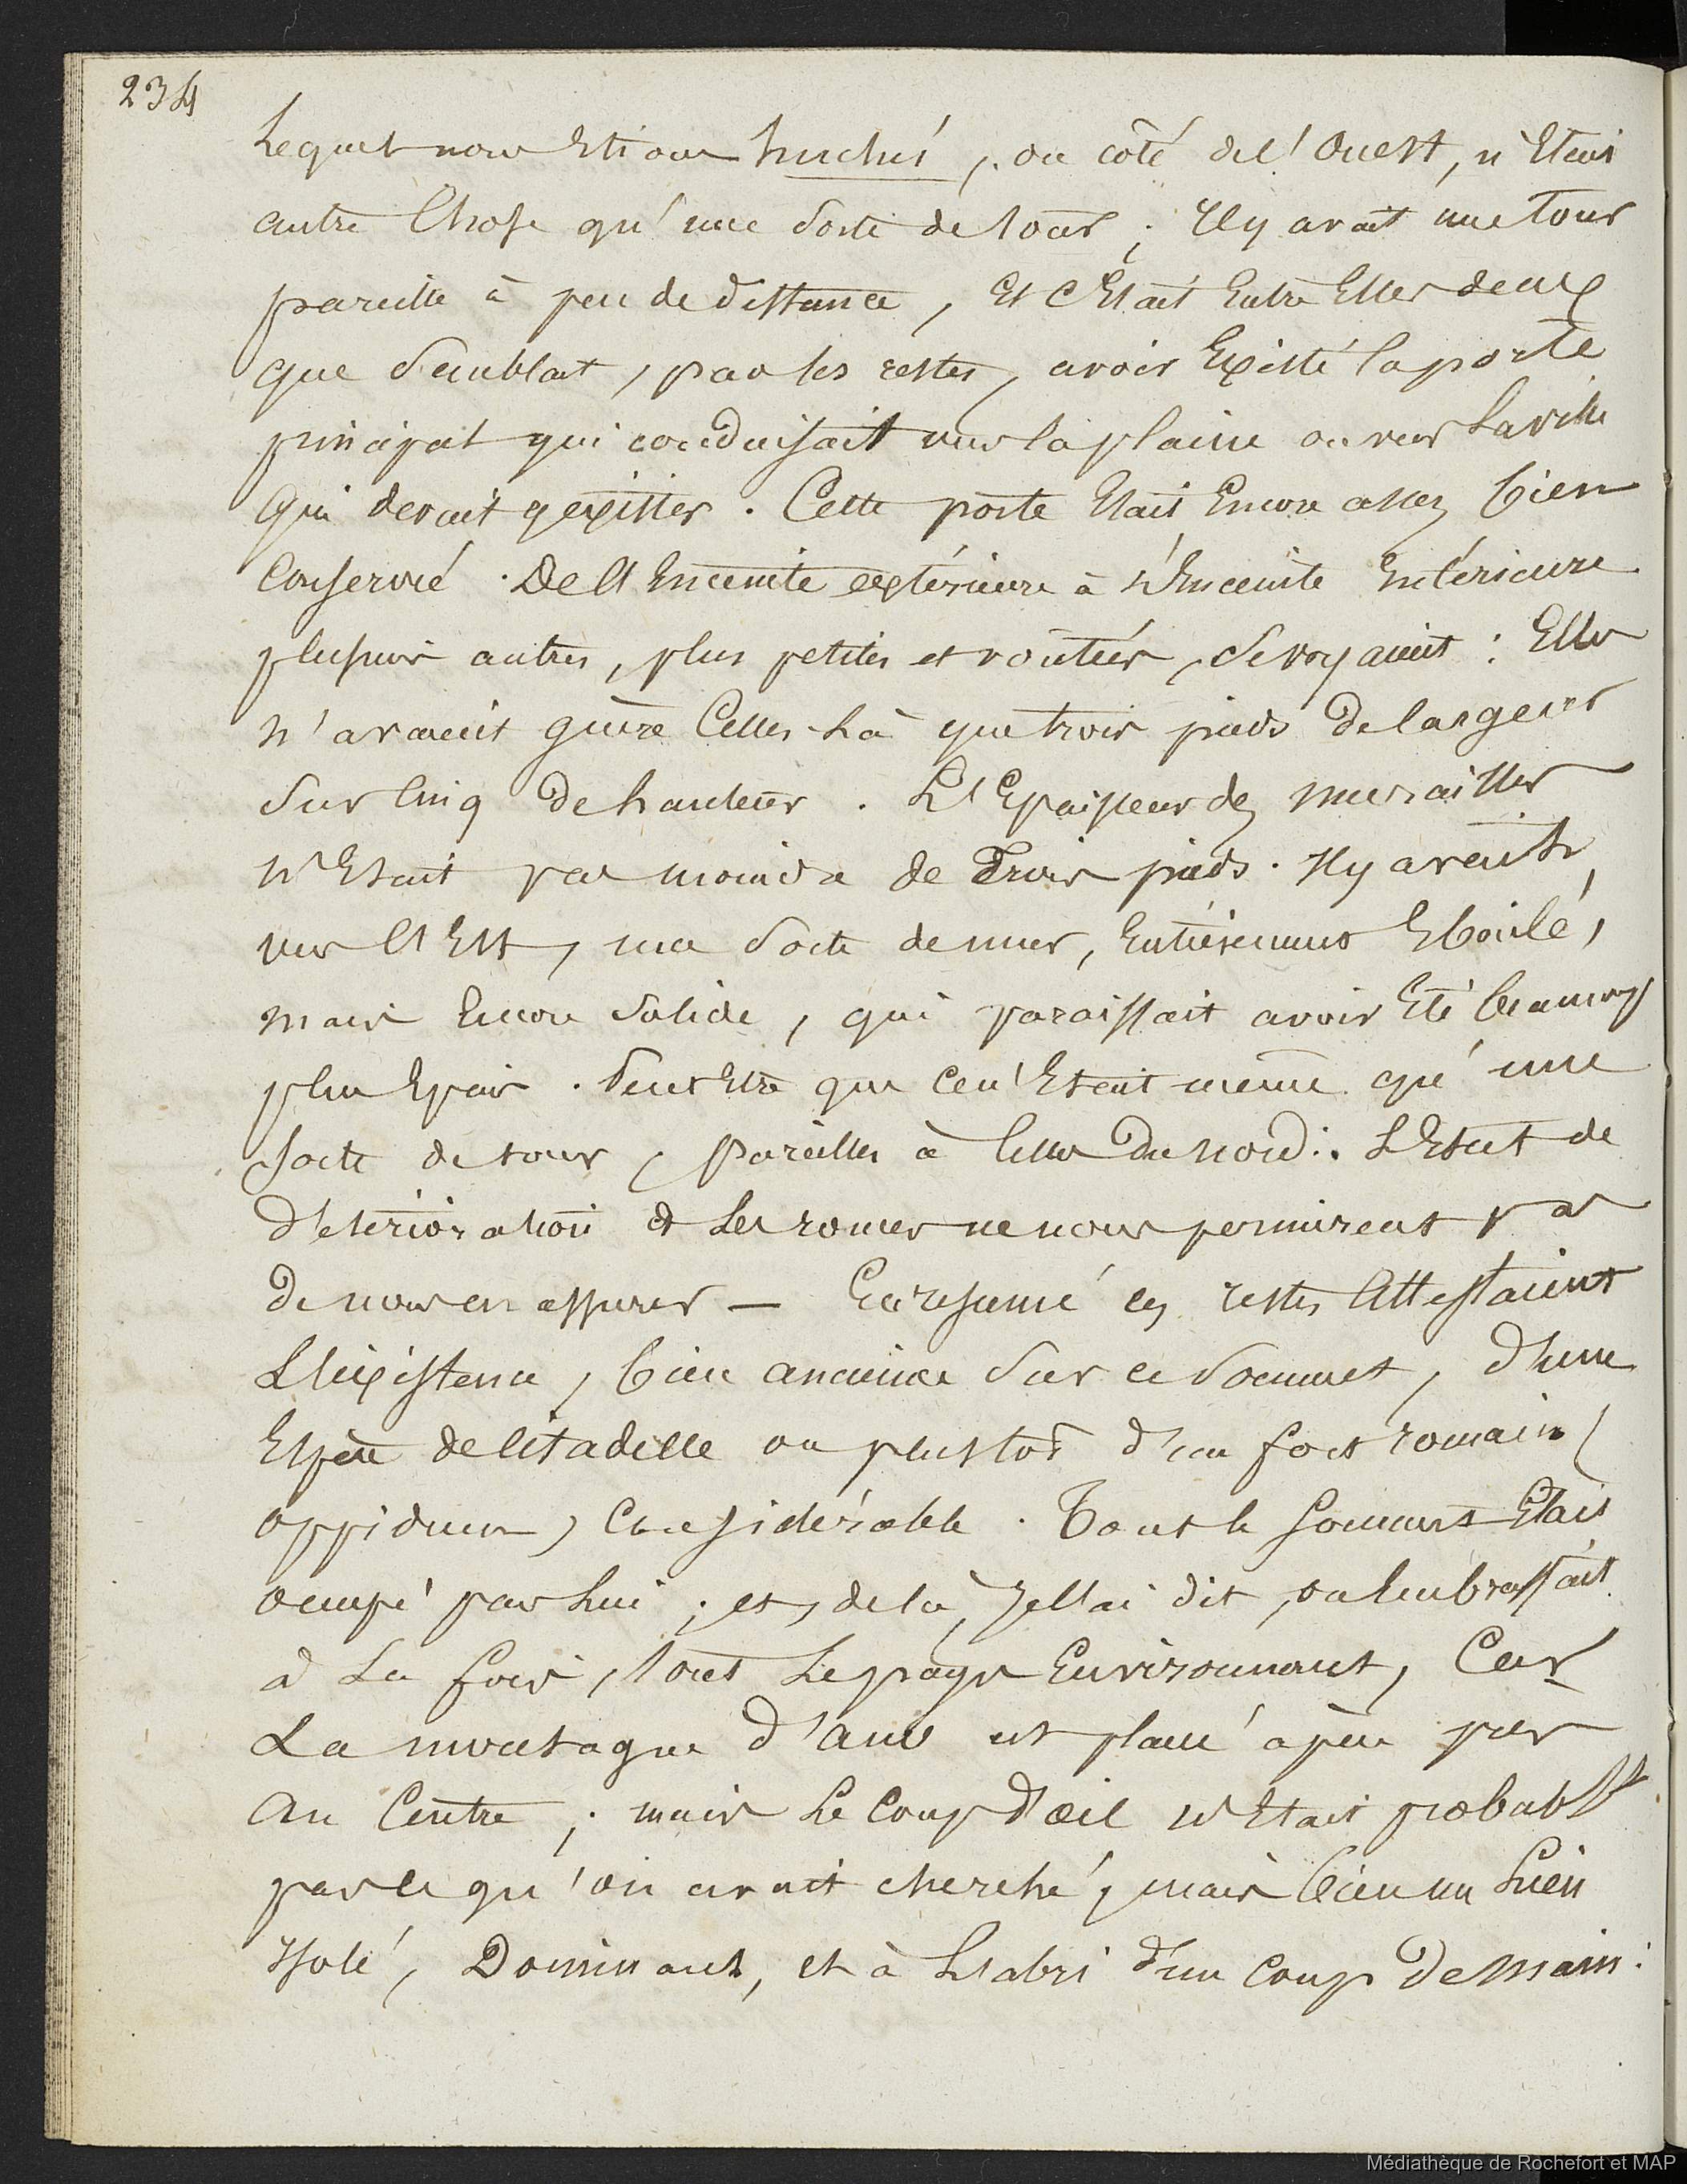 234
Lequel nous Etions huchés, du côté de l'Ouest, n'Etait
autre Chose qu'une Sorte de tour ; Il y avait une Tour
pareille à peu de distance, Et C'Etait Entre Elles deux
que Semblait, par les restes, avoir Existé la porte
principal qui conduisait vers la plaine ou vers La ville
Qui devait y exister . Cette porte Etait Encore assez bien
Conservé . De l'Enceinte extérieure à L'Enceinte Intérieure
plusieurs autres, plus petites et voûtées, Se voyaient : Elles
n'avaient guère Celles-Là que trois pieds De largeur
Sur Cinq De hauteur . L'Epaisseur des murailles
N'Etait pas moindre de Trois pieds . Il y avait,
vers l'Est, une Sorte de mur, Entièrement Eboulé,
mais Encore Solide, qui paraissait avoir Eté beaucoup
plus Epais . Peut Etre que Ce n'Etait même qu'une
Sorte de tour, pareilles à Celles Du nord : L'Etat de
D'étérioration et Les ronces ne nous permirent pas
De nous en assurer — En résumé ces restes Attestaient
L'Existence, bien ancienne Sur ce Sommet, d'une
Espèce de Citadelle ou plustot d'un fort romain (
oppidum) Considérable . Tout le Sommet Etait
occupé par Lui ; et, de là, Je l'ai dit, on Embrassait
à La fois, tout Le pays Environnant, Car
La montagne d'Ans est placé à peu près
Au Centre ; mais Le Coup d'œil N'Etait probablt
pas ce qu'on avait cherché, mais bien un Lieu
Isolé, Dominant, et à L'abri d'un Coup De Main :
Médiathèque de Rochefort et MAP